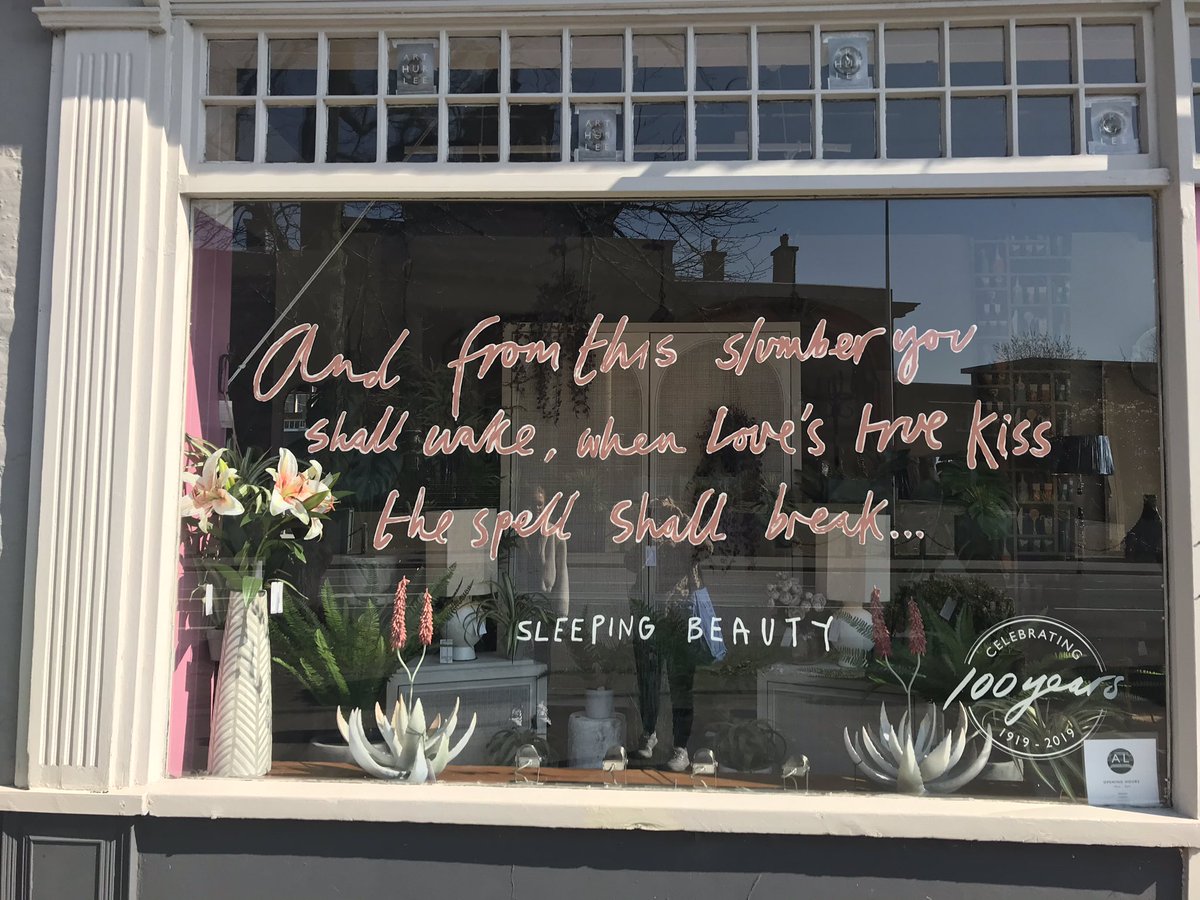 ART
HUR
LEE
And from this slumber you
shall wake, when Love's true Kiss
the spell shall break...
SLEEPING BEAUTY
CELEBRATING
100 years
1919 - 2019
AL
OPENING HOURS